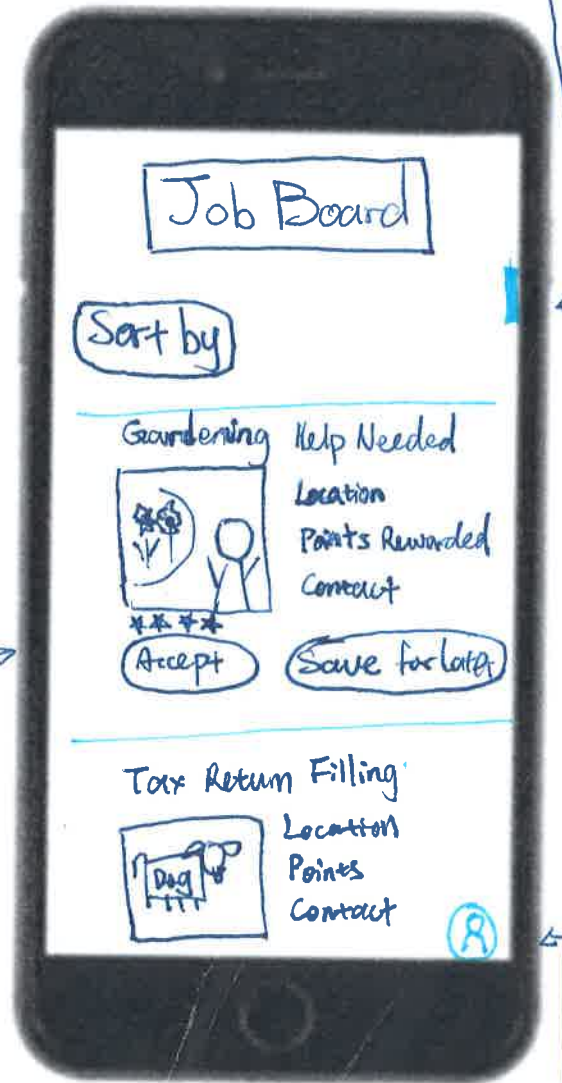 Job Board
Sort by
Gardening Help Needed
Location
Points Rewarded
Contact
Accept
Save for later
Tax Return Filling
Location
Points
Contact
Dog